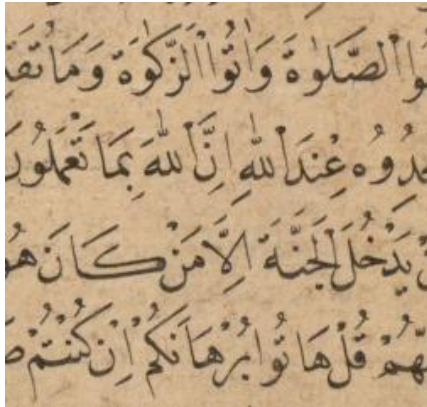 وا الصَّلٰوةَ وَاٰتُوا الزَّكٰوةَ وَمَا تُقَدِّ
جِدُوهُ عِنْدَ اللّٰهِ اِنَّ اللّٰهَ بِمَا تَعْمَلُونَ
يَدْخُلَ الْجَنَّةَ اِلَّا مَنْ كَانَ هُو
هُمْ قُلْ هَاتُوا بُرْهَانَكُمْ اِنْ كُنْتُمْ ص